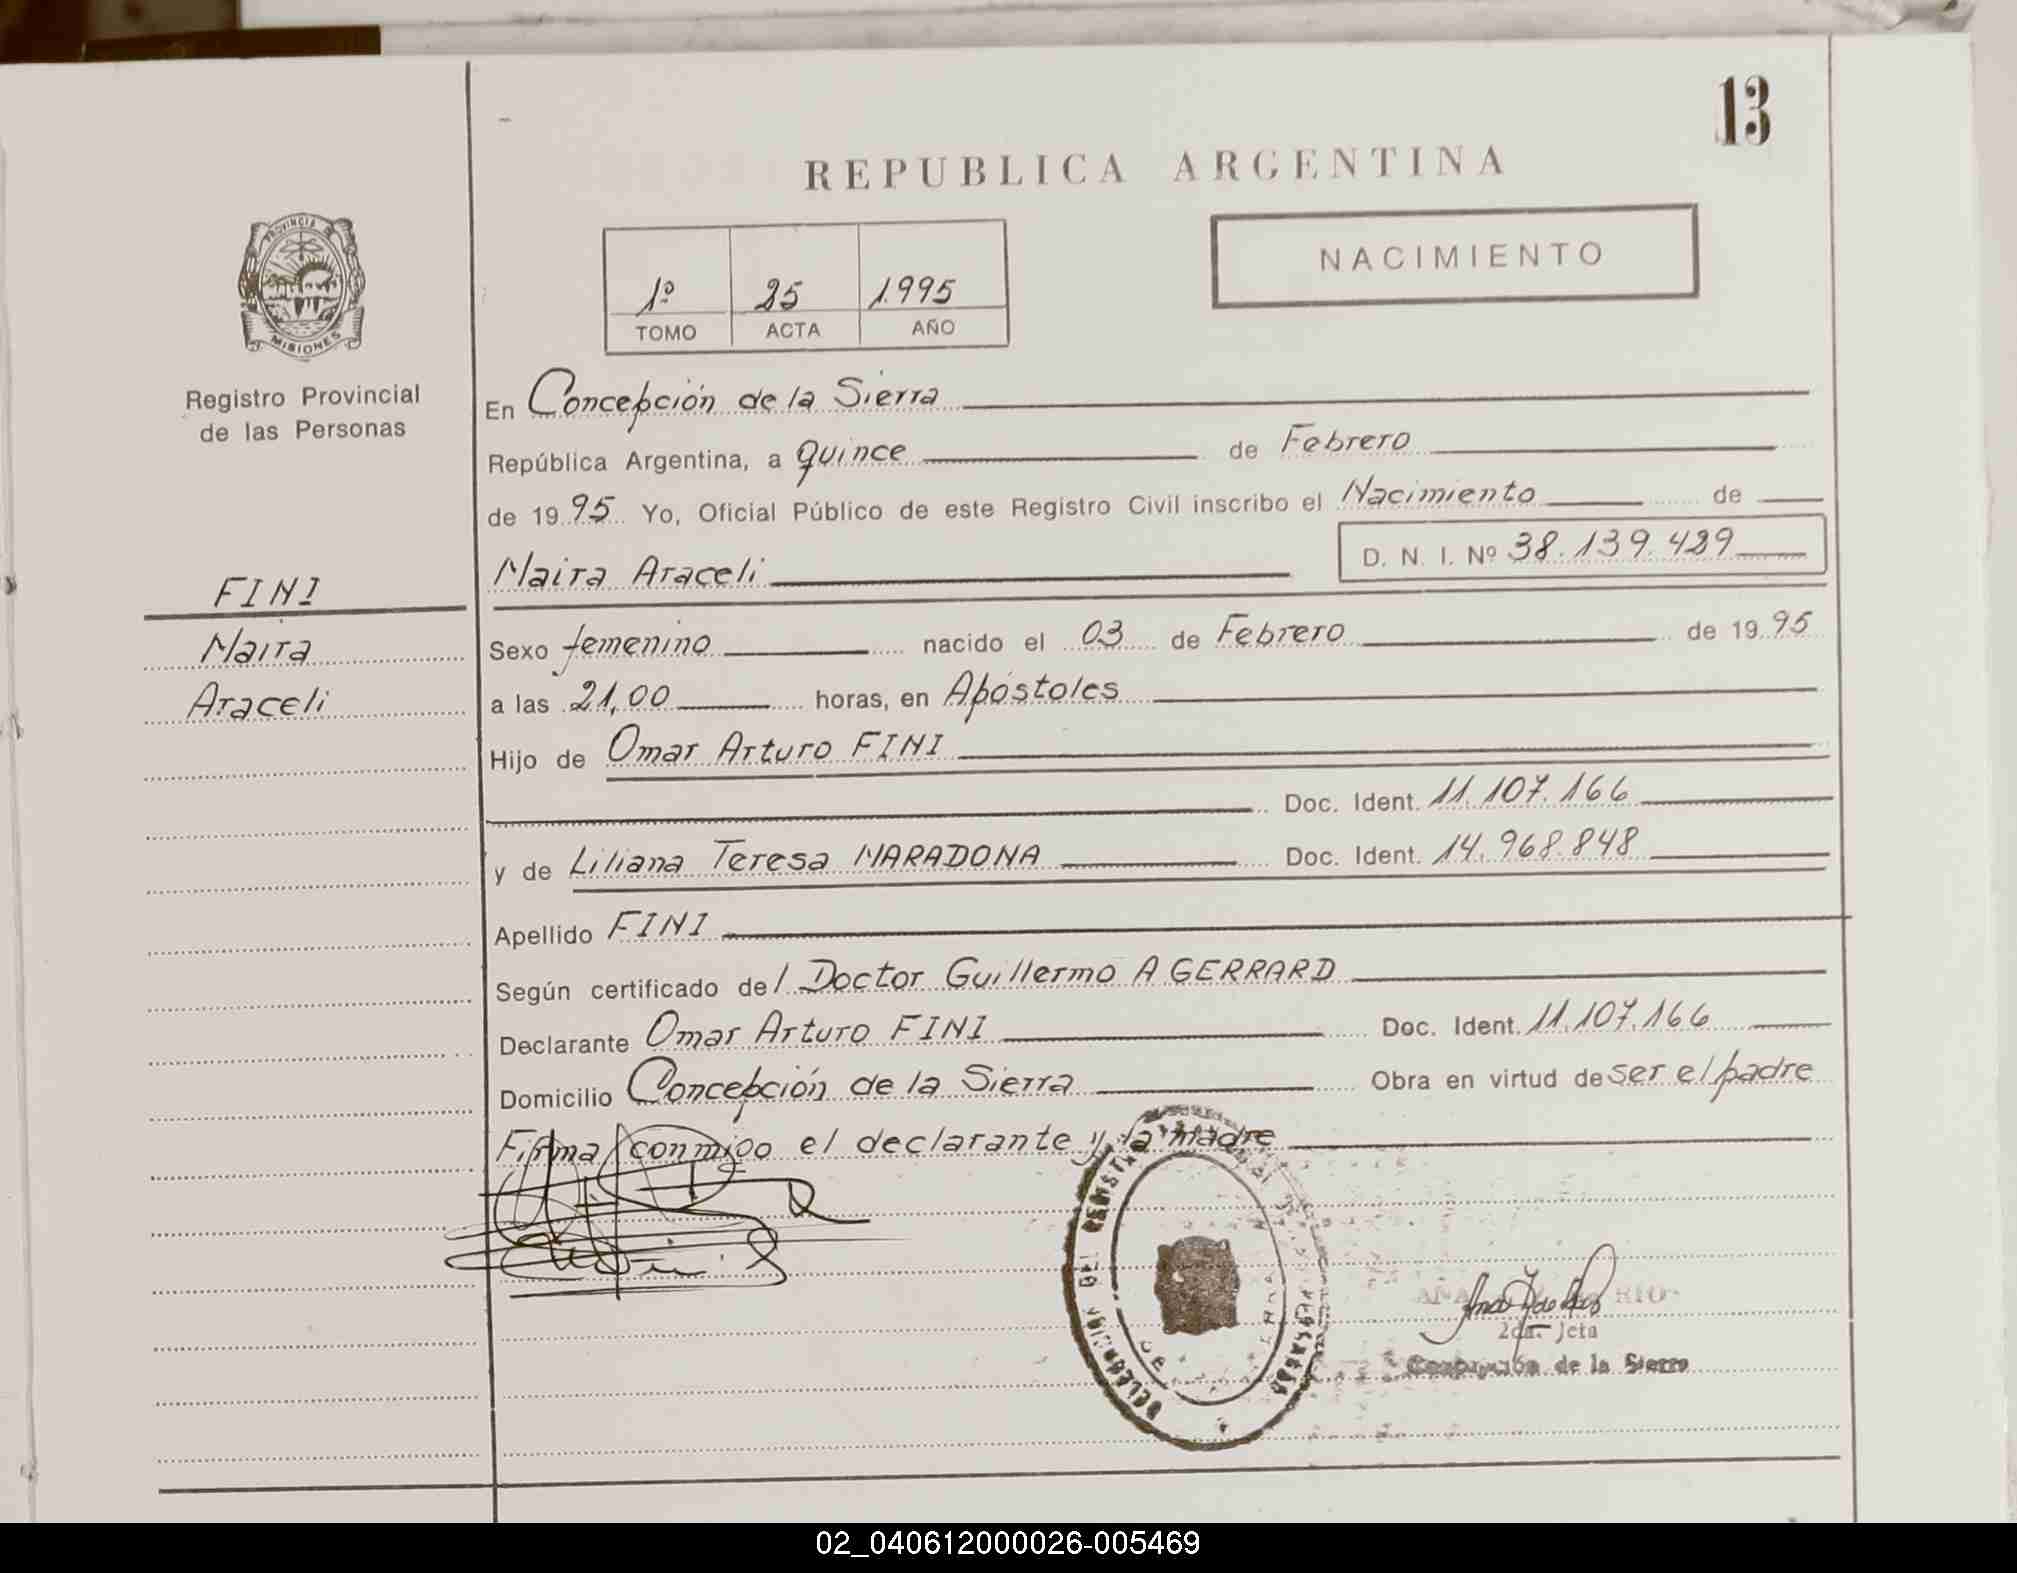 13
REPUBLICA ARGENTINA
1º 25 1.995
TOMO ACTA AÑO
NACIMIENTO
PROVINCIA DE
MISIONES
Registro Provincial
de las Personas
FINI
Maira
Araceli
En Concepción de la Sierra
República Argentina, a quince de Febrero
de 1995 Yo, Oficial Público de este Registro Civil inscribo el Nacimiento de
Maira Araceli D. N. I. Nº 38.139.429
Sexo femenino nacido el 03 de Febrero de 1995
a las 21,00 horas, en Apóstoles
Hijo de Omar Arturo FINI
Doc. Ident. 11.107.166
y de Liliana Teresa MARADONA Doc. Ident. 14.968.848
Apellido FINI
Según certificado del Doctor Guillermo A GERRARD
Declarante Omar Arturo FINI Doc. Ident. 11.107.166
Domicilio Concepción de la Sierra Obra en virtud de ser el padre
Firma conmigo el declarante y la madre
2da. Jefa
Concepción de la Sierra
02_040612000026-005469